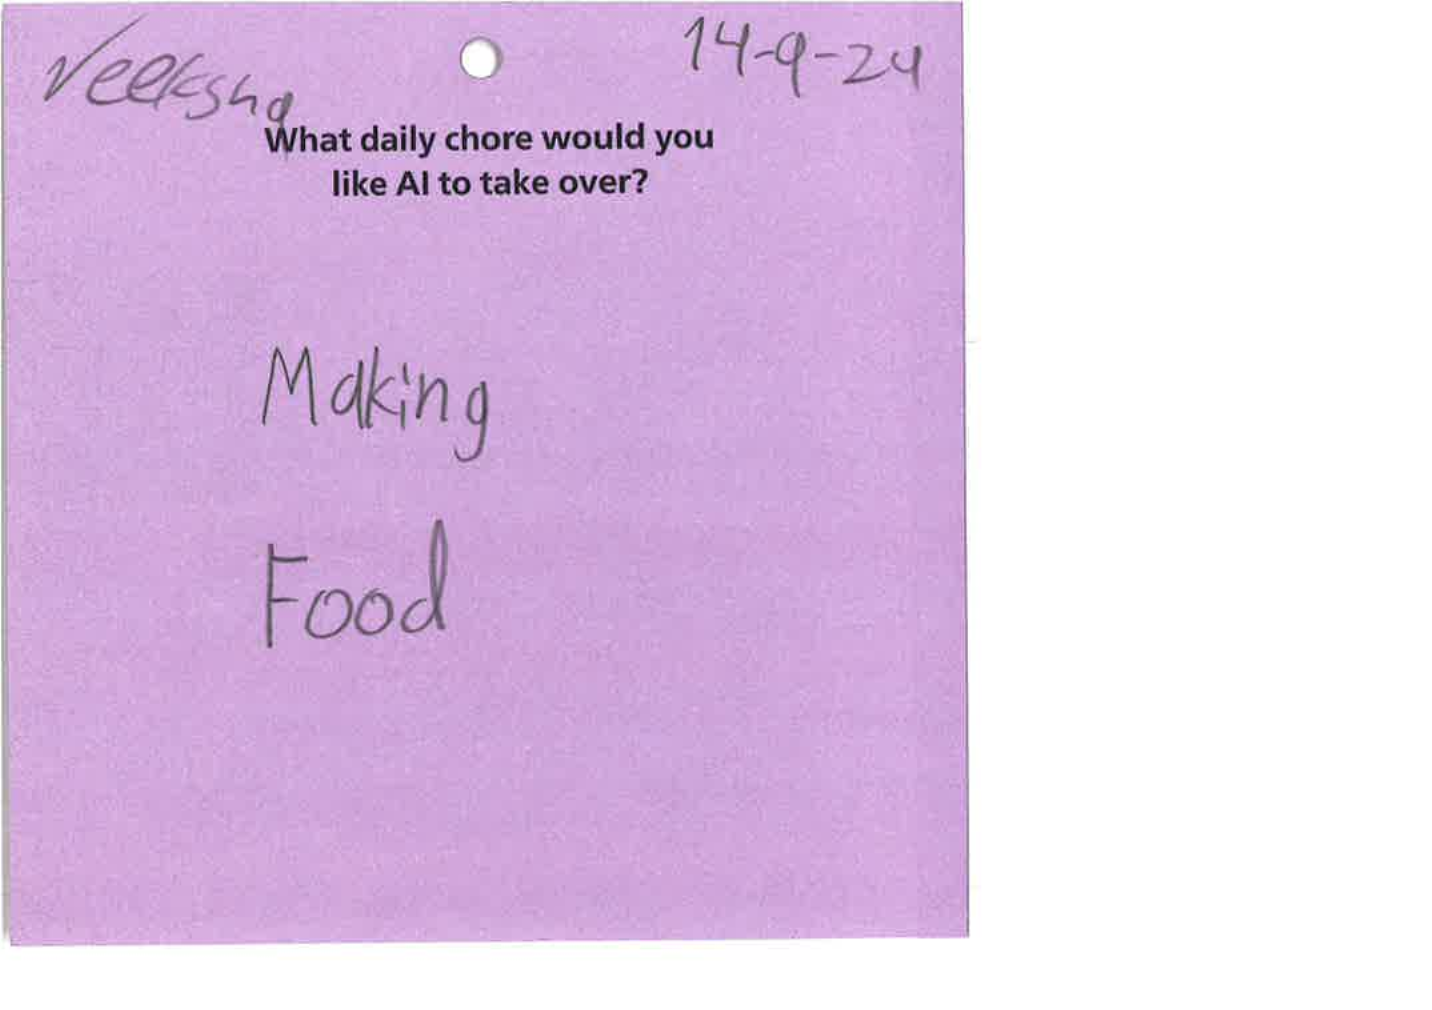 Veeksha
14-9-24
What daily chore would you
like AI to take over?
Making
Food